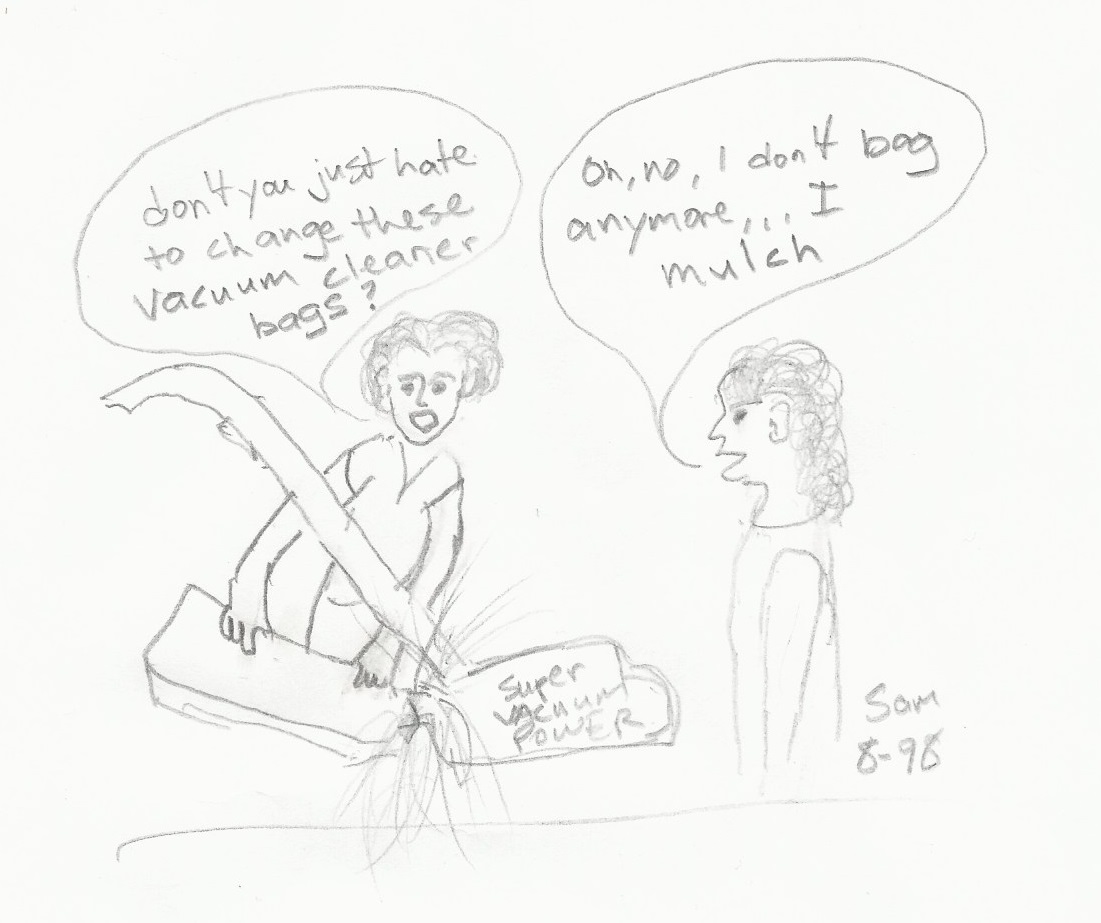 don't you just hate
to change these
vacuum cleaner
bags?
Oh, no, I don't bag
anymore... I
mulch
Super
VACUUM
POWER
Sam
8-98